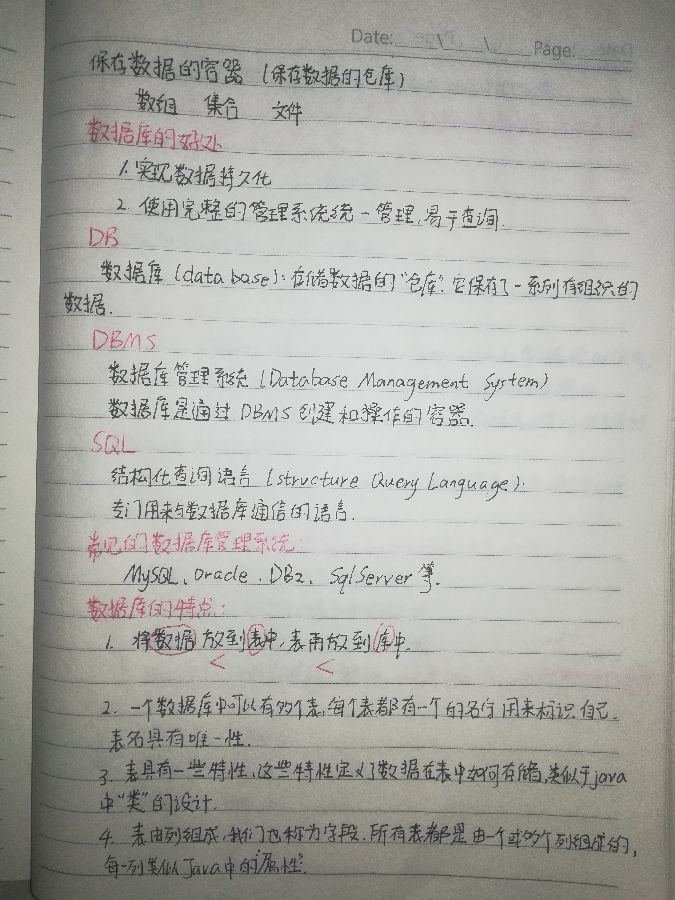 Date: \ \ Page:
保存数据的容器 (保存数据的仓库)
数组 集合 文件
数据库的好处
1. 实现数据持久化
2. 使用完整的管理系统统一管理,易于查询.
DB
数据库 (database): 存储数据的"仓库". 它保存了一系列有组织的
数据.
DBMS
数据库管理系统 (Database Management System)
数据库是通过 DBMS 创建和操作的容器.
SQL
结构化查询语言 (structure Query Language):
专门用来与数据库通信的语言.
常见的数据库管理系统:
MySQL、Oracle、DB2、SqlServer 等.
数据库的特点:
1. 将数据放到表中,表再放到库中.
< <
2. 一个数据库中可以有多个表,每个表都有一个的名字用来标识自己.
表名具有唯一性.
3. 表具有一些特性,这些特性定义了数据在表中如何存储,类似于java
中"类"的设计.
4. 表由列组成,我们也称为字段.所有表都是由一个或多个列组成的,
每一列类似Java中的"属性".